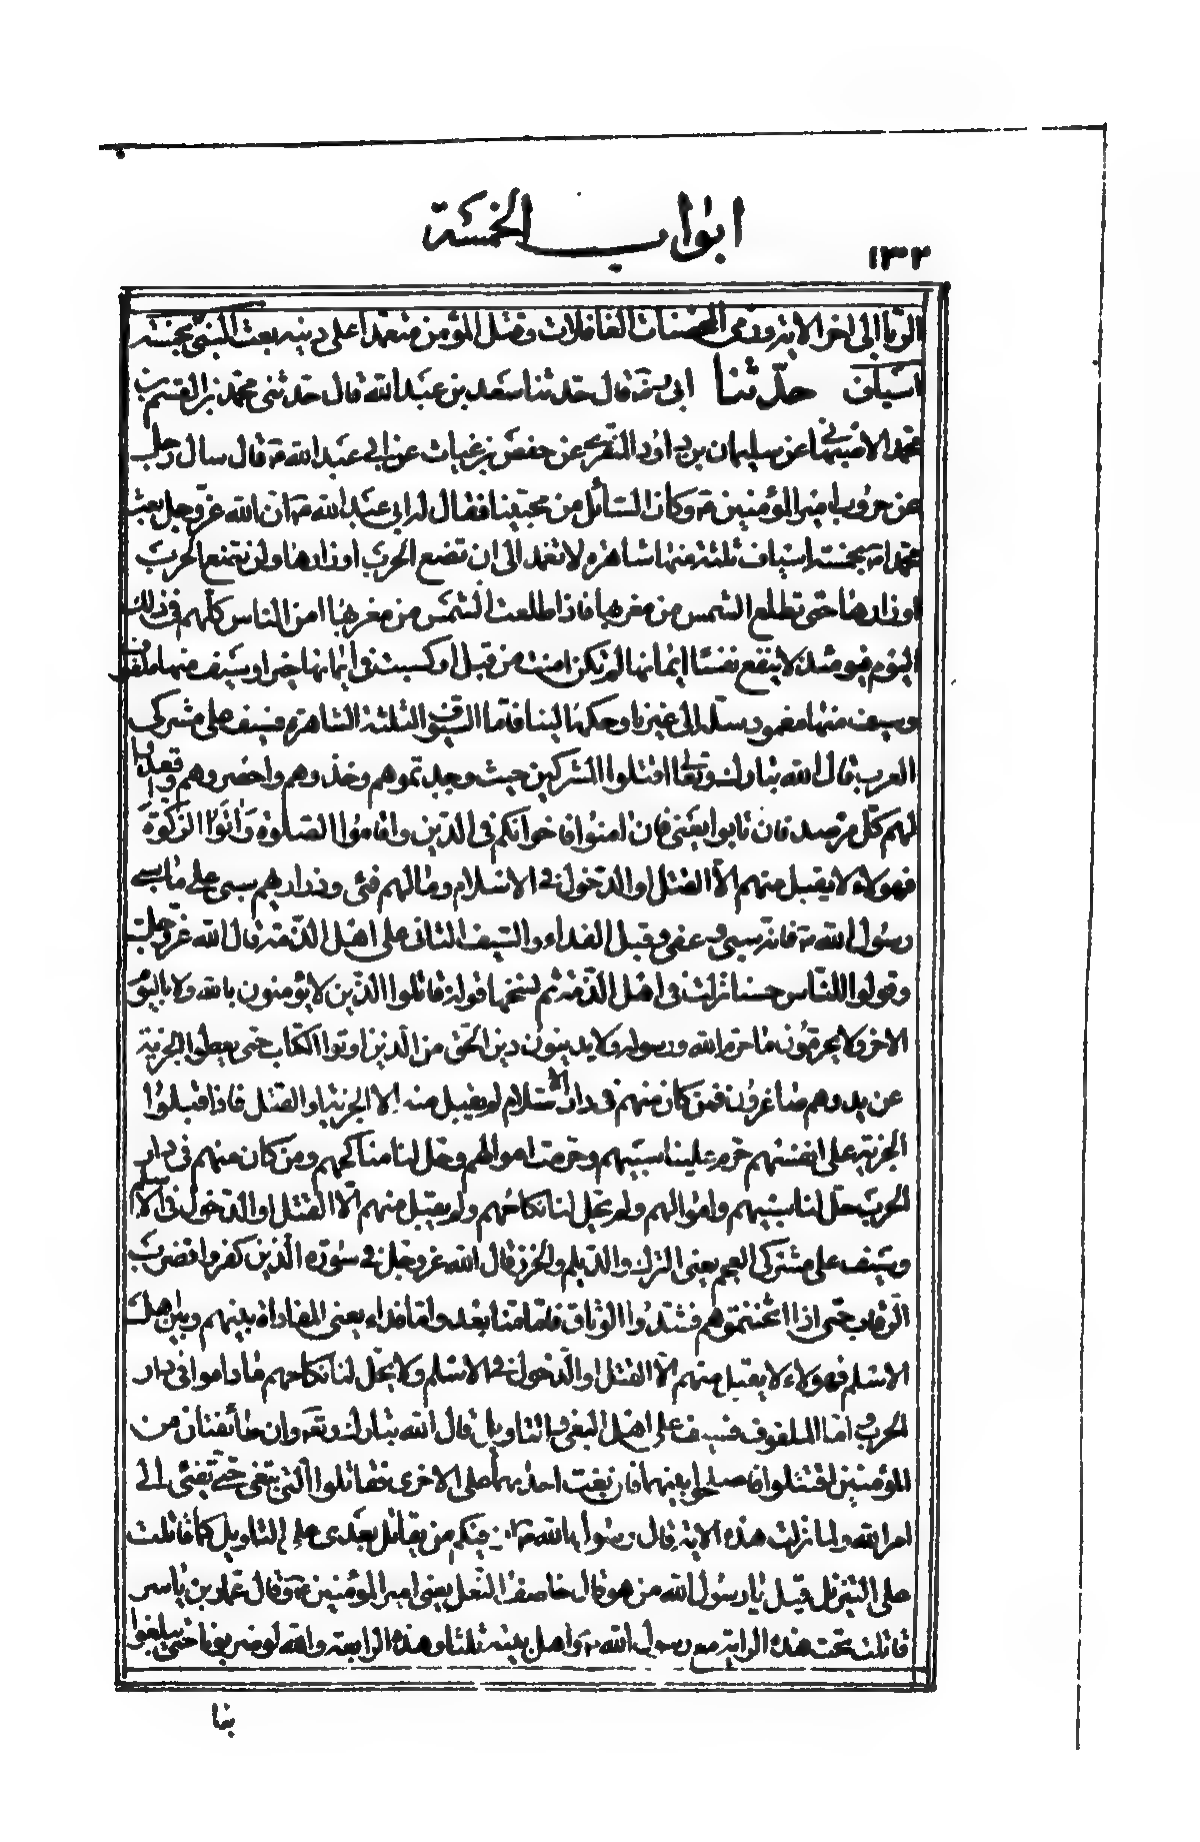 ابواب الخمسة
١٣٢
الربا الى اخر الاية وقذف المحصنات الغافلات وقتل المؤمن متعمدا على دينه بعث النبي بخمسة
اسياف حدثنا ابي رض قال حدثنا سعد بن عبد الله قال حدثني محمد بن القسم بن
محمد الاصبهاني عن سليمان بن داود المنقري عن حفص بن غياث عن ابي عبد الله ع قال سال رجل
عن حروب امير المؤمنين ع وكان السائل من محبينا فقال له ابي عبد الله ع ان الله عز وجل بعث
محمدا ص بخمسة اسياف ثلثة منها شاهرة لا تغمد الى ان تضع الحرب اوزارها ولن تضع الحرب
اوزارها حتى تطلع الشمس من مغربها فاذا طلعت الشمس من مغربها امن الناس كلهم في ذلك
اليوم فيومئذ لا ينفع نفسا ايمانها لم تكن امنت من قبل او كسبت في ايمانها خيرا وسيف منها ملفوف
وسيف منها مغمود سله الى غيرنا وحكمه الينا فاما السيوف الثلثة الشاهرة فسيف على مشركي
العرب قال الله تبارك وتعالى اقتلوا المشركين حيث وجدتموهم وخذوهم واحصروهم واقعدوا
لهم كل مرصد فان تابوا يعني فان امنوا فاخوانكم في الدين واقاموا الصلوة واتوا الزكوة
فهولاء لا يقبل منهم الا القتل او الدخول في الاسلام ومالهم فئ وذراريهم سبي على ما سبى
رسول الله ص فانه سبى وعفى وقبل الفداء والسيف الثاني على اهل الذمة قال الله عز وجل
وقولوا للناس حسنا نزلت في اهل الذمة ثم نسخها قوله قاتلوا الذين لا يؤمنون بالله ولا باليوم
الاخر ولا يحرمون ما حرم الله ورسوله ولا يدينون دين الحق من الذين اوتوا الكتاب حتى يعطوا الجزية
عن يد وهم صاغرون فمن كان منهم في دار الاسلام لم يقبل منه الا الجزية او القتل فاذا قبلوا
الجزية على انفسهم حرم علينا سبيهم وحرمت اموالهم وحل لنا مناكحهم ومن كان منهم في دار
الحرب حل لنا سبيهم واموالهم ولم يحل لنا نكاحهم ولم يقبل منهم الا القتل او الدخول في الاسلم
وسيف على مشركي العجم يعني الترك والديلم والخزر قال الله عز وجل في سورة الذين كفروا فضرب
الرقاب حتى اذا اثخنتموهم فشدوا الوثاق فاما منا بعد واما فداء يعني المفاداة بينهم وبين اهل
الاسلم فهولاء لا يقبل منهم الا القتل او الدخول في الاسلم ولا يحل لنا نكاحهم ما داموا في دار
الحرب واما الملفوف فسيف على اهل البغي والتاويل قال الله تبارك وتعه وان طائفتان من
المؤمنين اقتتلوا فاصلحوا بينهما فان بغت احديهما على الاخرى فقاتلوا التي تبغي حتى تفئ الى
امر الله ولما نزلت هذه الاية قال رسول الله ص ان فيكم من يقاتل بعدي على التاويل كما قاتلت
على التنزيل فقيل يا رسول الله من هو قال خاصف النعل يعني امير المؤمنين ع وقال عمار بن ياسر
قاتلت تحت هذه الراية مع رسول الله ص واهل بيته ثلثا وهذه الرابعة والله لو ضربونا حتى يبلغوا
بنا